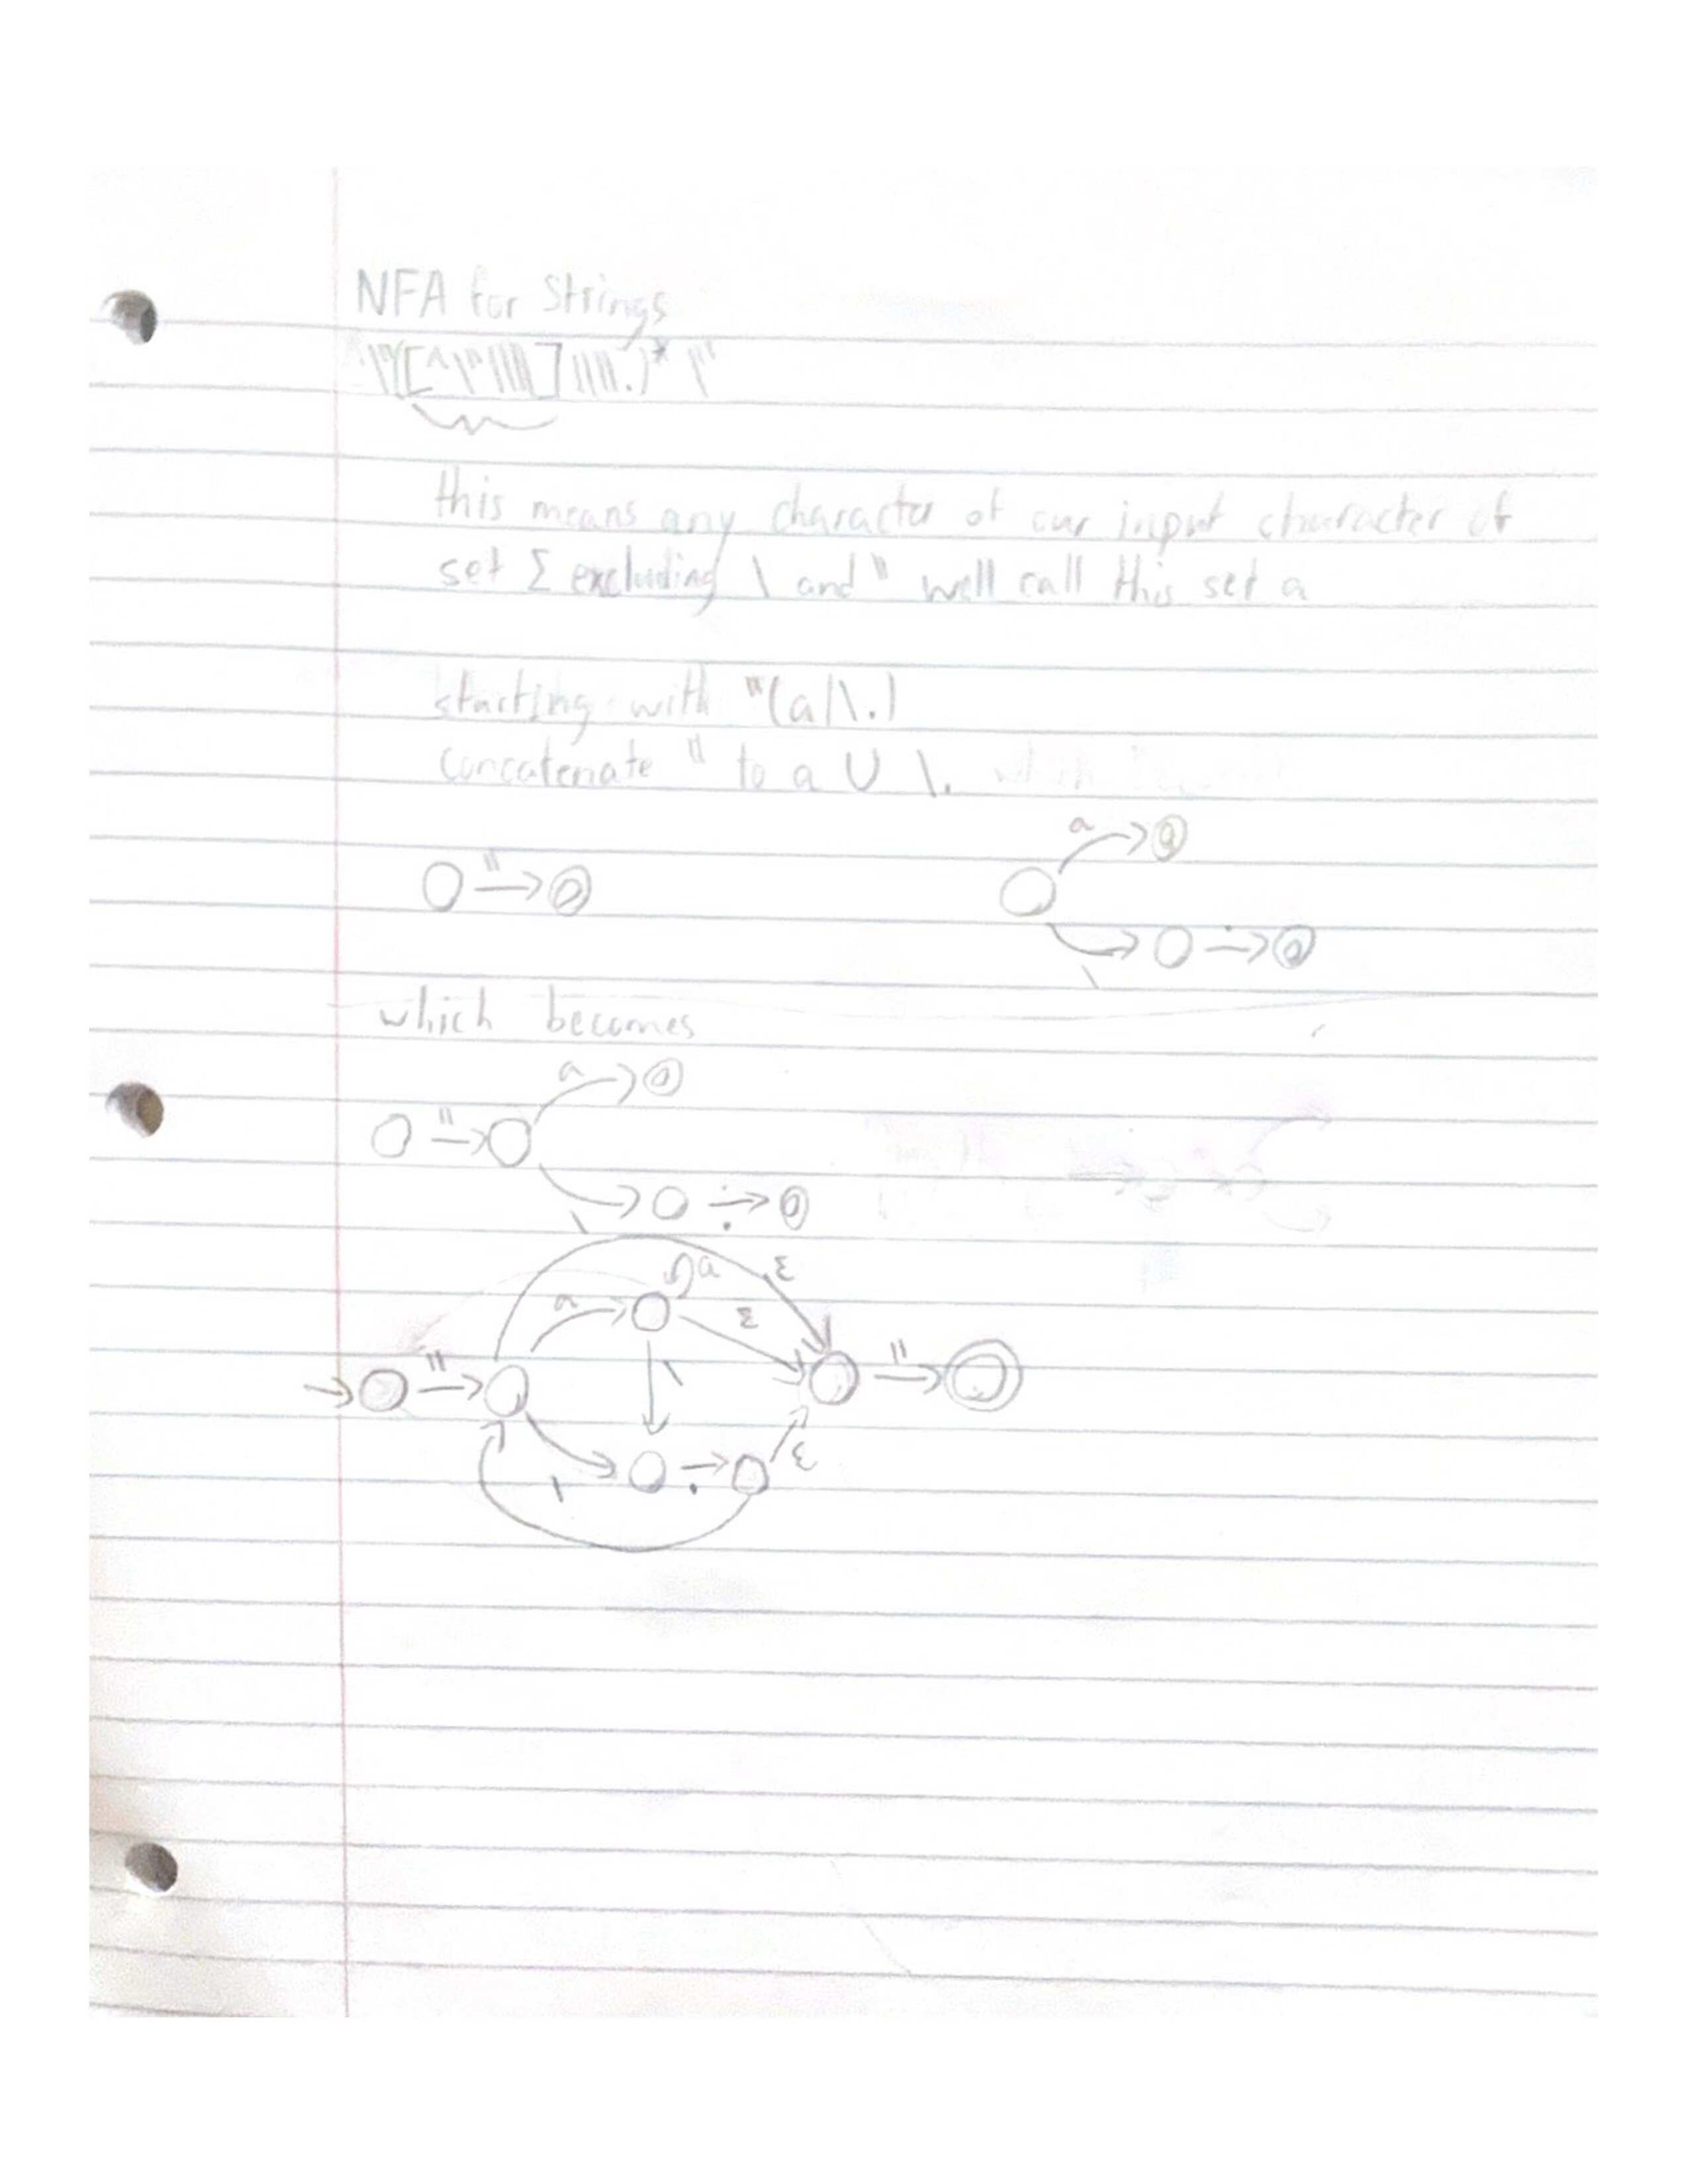 NFA for Strings
\"([^\"\\]|\\.)*\"
this means any character of our input character of
set Σ excluding \ and " well call this set a
starting with "(a|\.)
concatenate " to a U \.
" a
\ .
which becomes
" a
\ .
a ε
a ε
" \ "
\ . ε